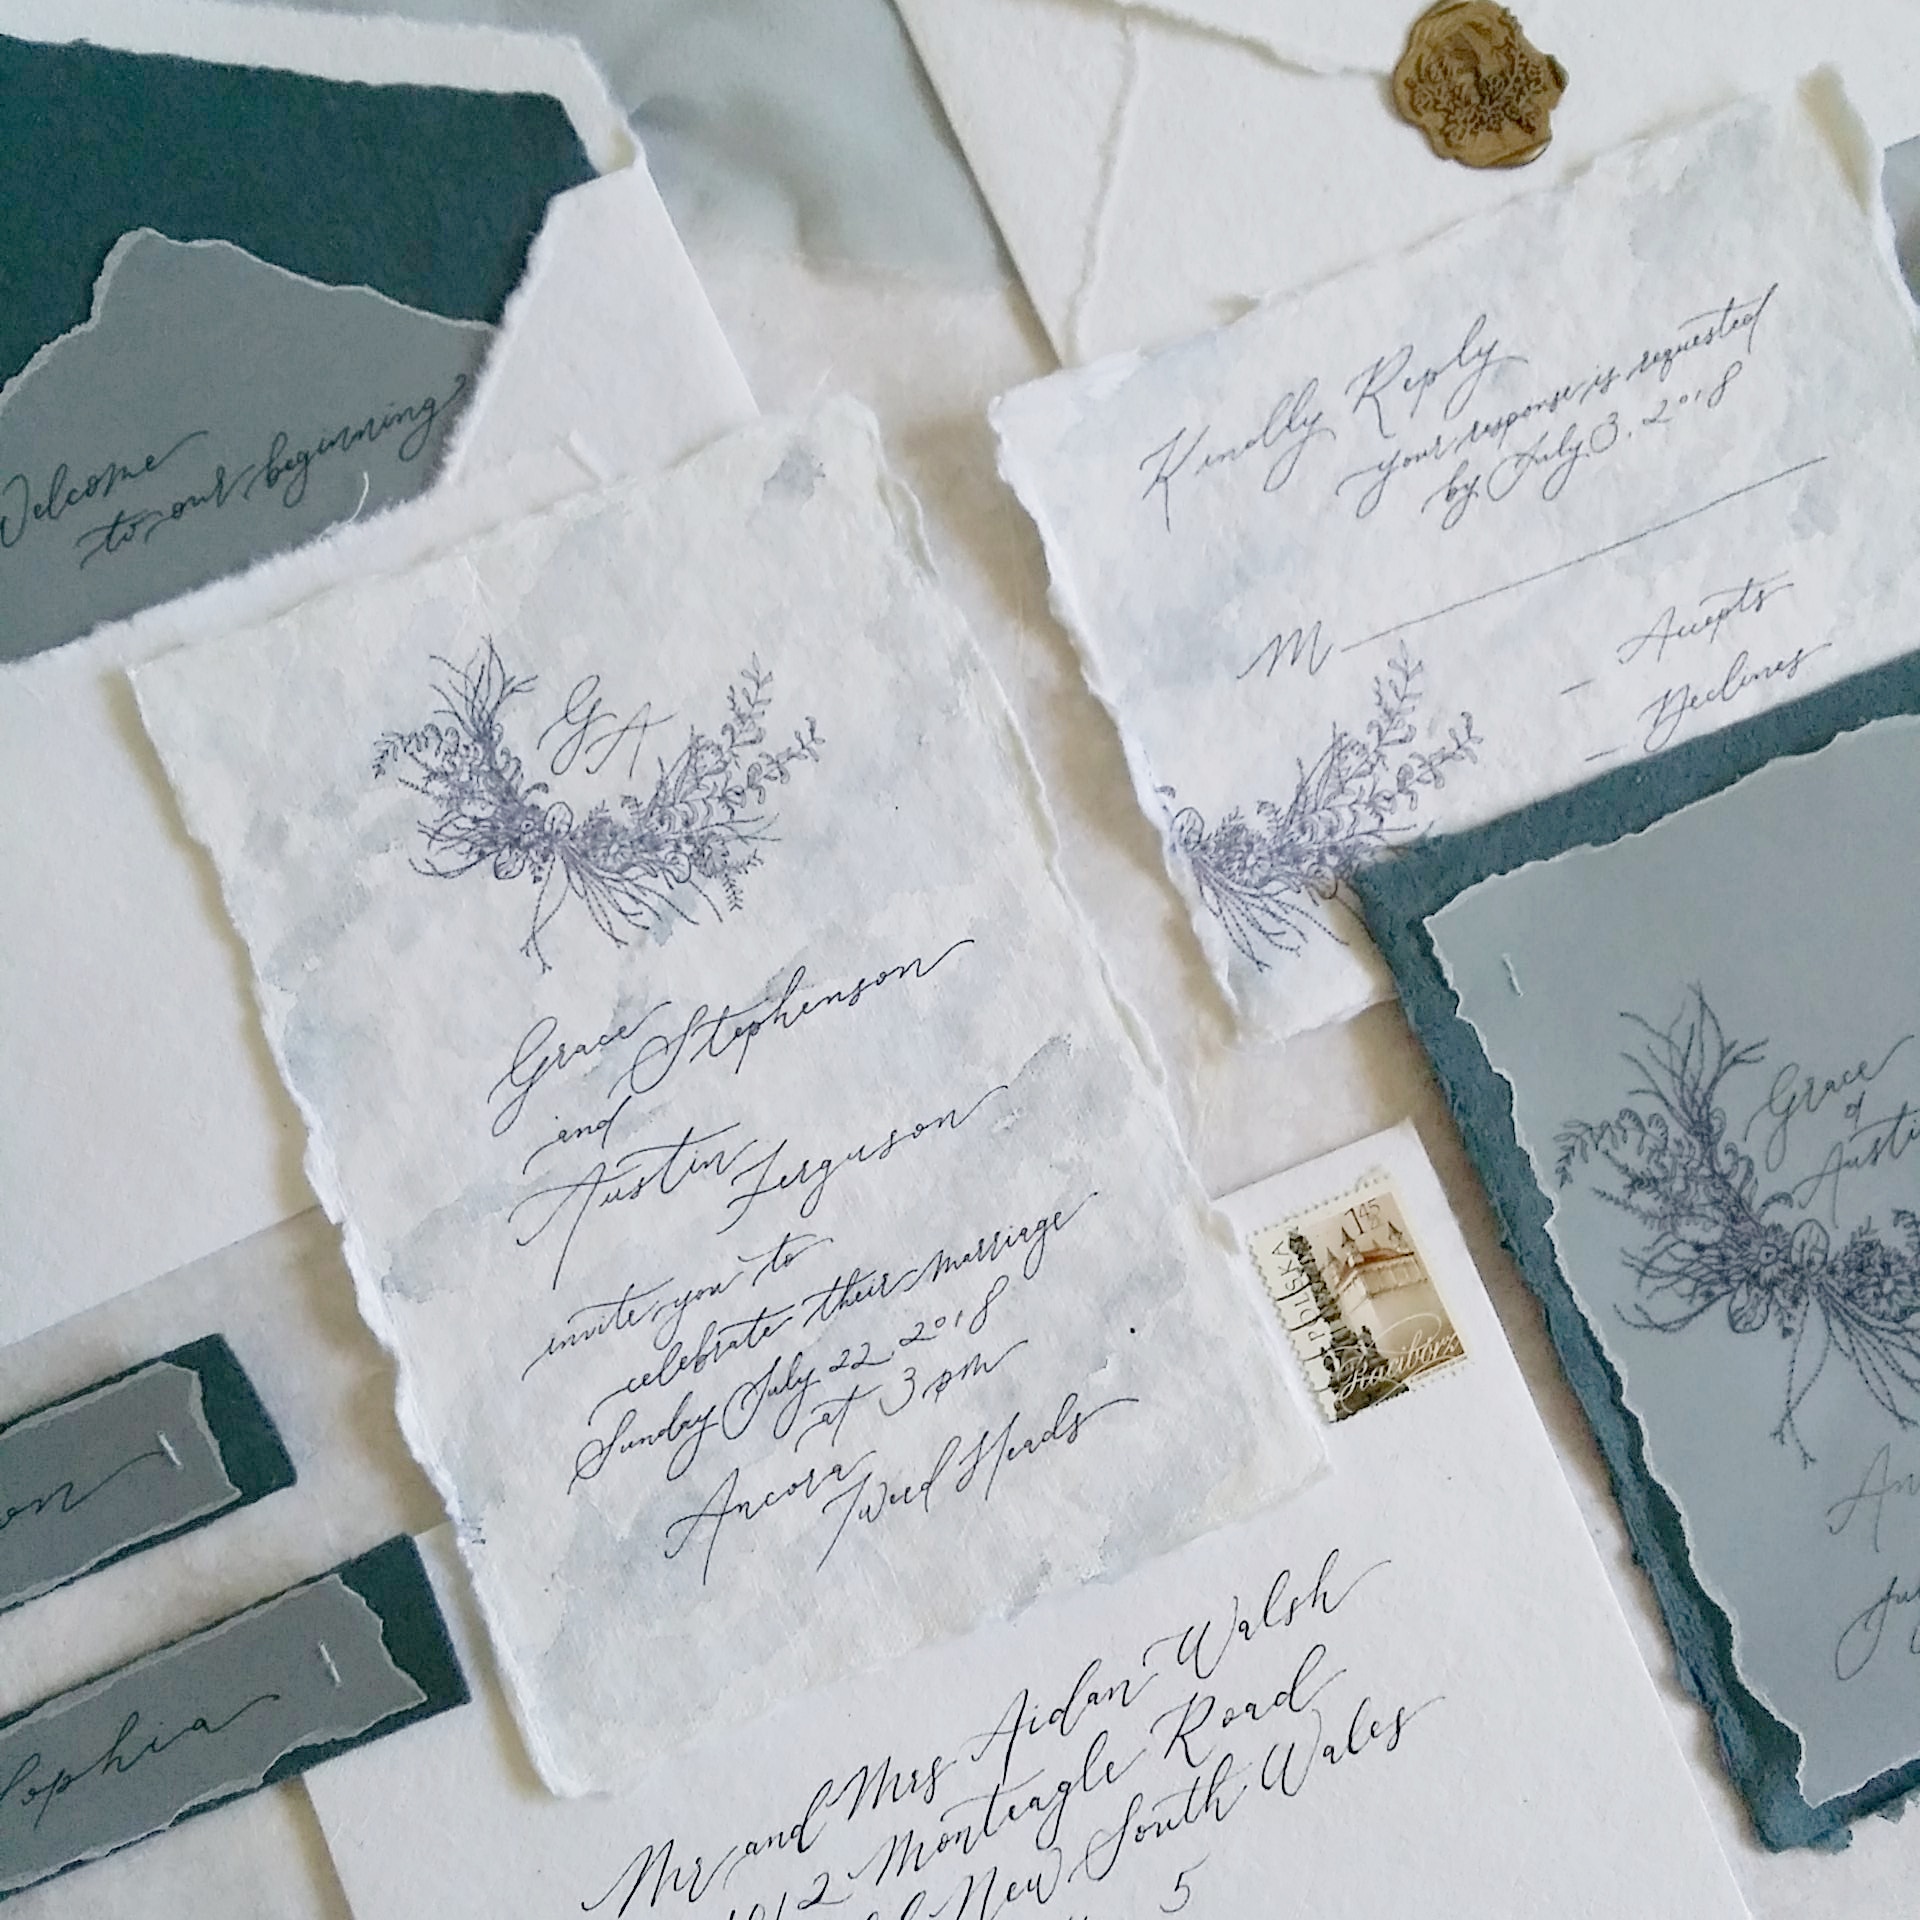 Welcome
to our beginning
Kindly Reply
your response is requested
by July 3, 2018
M
Accepts
Declines
GA
Grace Stephenson
and
Austin Ferguson
invite you to
celebrate their marriage
Sunday July 22, 2018
at 3 pm
Ancora
Tweed Heads
1 45
POLSKA
Racibórz
Grace
Austi
An
Ju
on
Sophia
Mr and Mrs Aidan Walsh
2 Monteagle Road
New South Wales
5